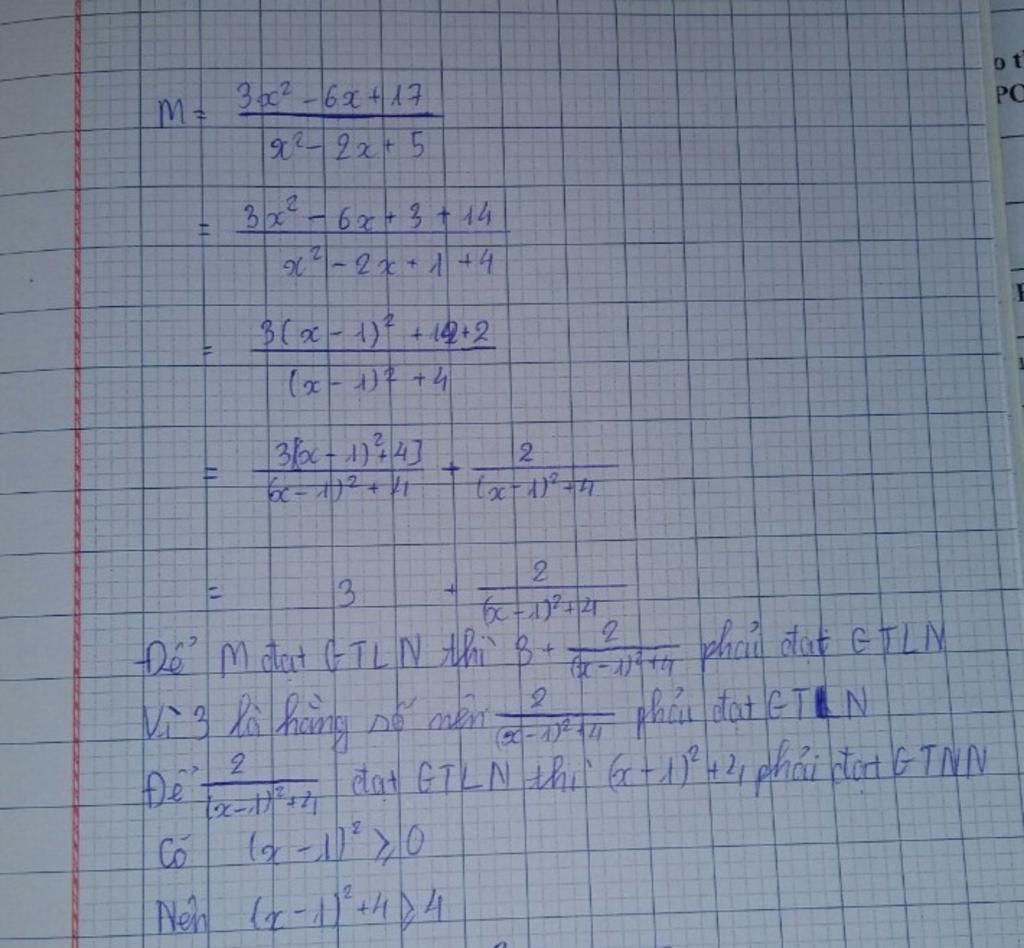 M = \frac{3x² - 6x + 17}{x² - 2x + 5}
= \frac{3x² - 6x + 3 + 14}{x² - 2x + 1 + 4}
= \frac{3(x - 1)² + 12 + 2}{(x - 1)² + 4}
= \frac{3[(x - 1)² + 4]}{(x - 1)² + 4} + \frac{2}{(x - 1)² + 4}
= 3 + \frac{2}{(x - 1)² + 4}
Để M đạt GTLN thì 3 + \frac{2}{(x - 1)² + 4} phải đạt GTLN
Vì 3 là hằng số nên \frac{2}{(x - 1)² + 4} phải đạt GTLN
Để \frac{2}{(x - 1)² + 4} đạt GTLN thì (x - 1)² + 4 phải đạt GTNN
Có (x - 1)² ⩾ 0
Nên (x - 1)² + 4 ⩾ 4